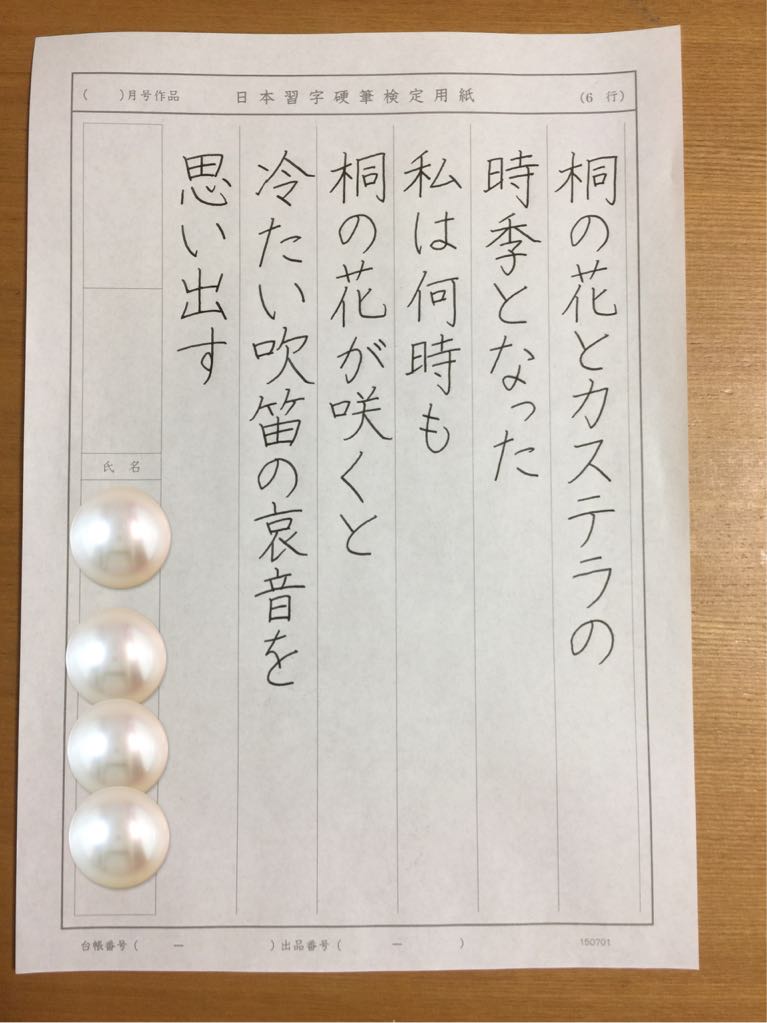 ( )月号作品 日本習字硬筆検定用紙 (6 行)
桐の花とカステラの
時季となった
私は何時も
桐の花が咲くと
冷たい吹笛の哀音を
思い出す
氏名
台帳番号( ー )出品番号( ー ) 150701